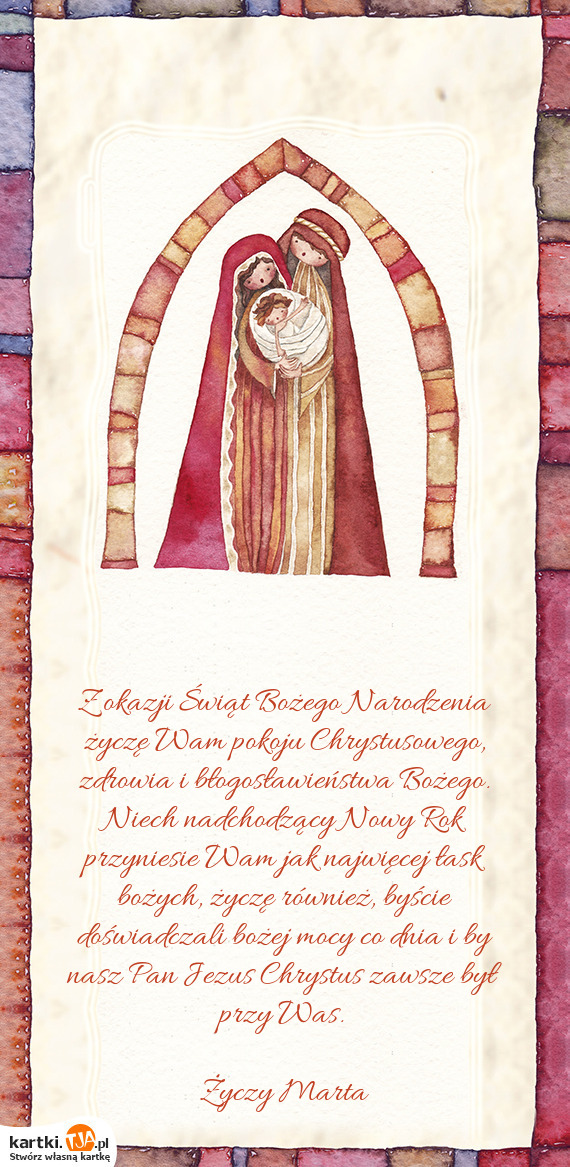 Z okazji Świąt Bożego Narodzenia
życzę Wam pokoju Chrystusowego,
zdrowia i błogosławieństwa Bożego.
Niech nadchodzący Nowy Rok
przyniesie Wam jak najwięcej łask
bożych, życzę również, byście
doświadczali bożej mocy co dnia i by
nasz Pan Jezus Chrystus zawsze był
przy Was.
Życzy Marta
kartki.TJA.pl
Stwórz własną kartkę